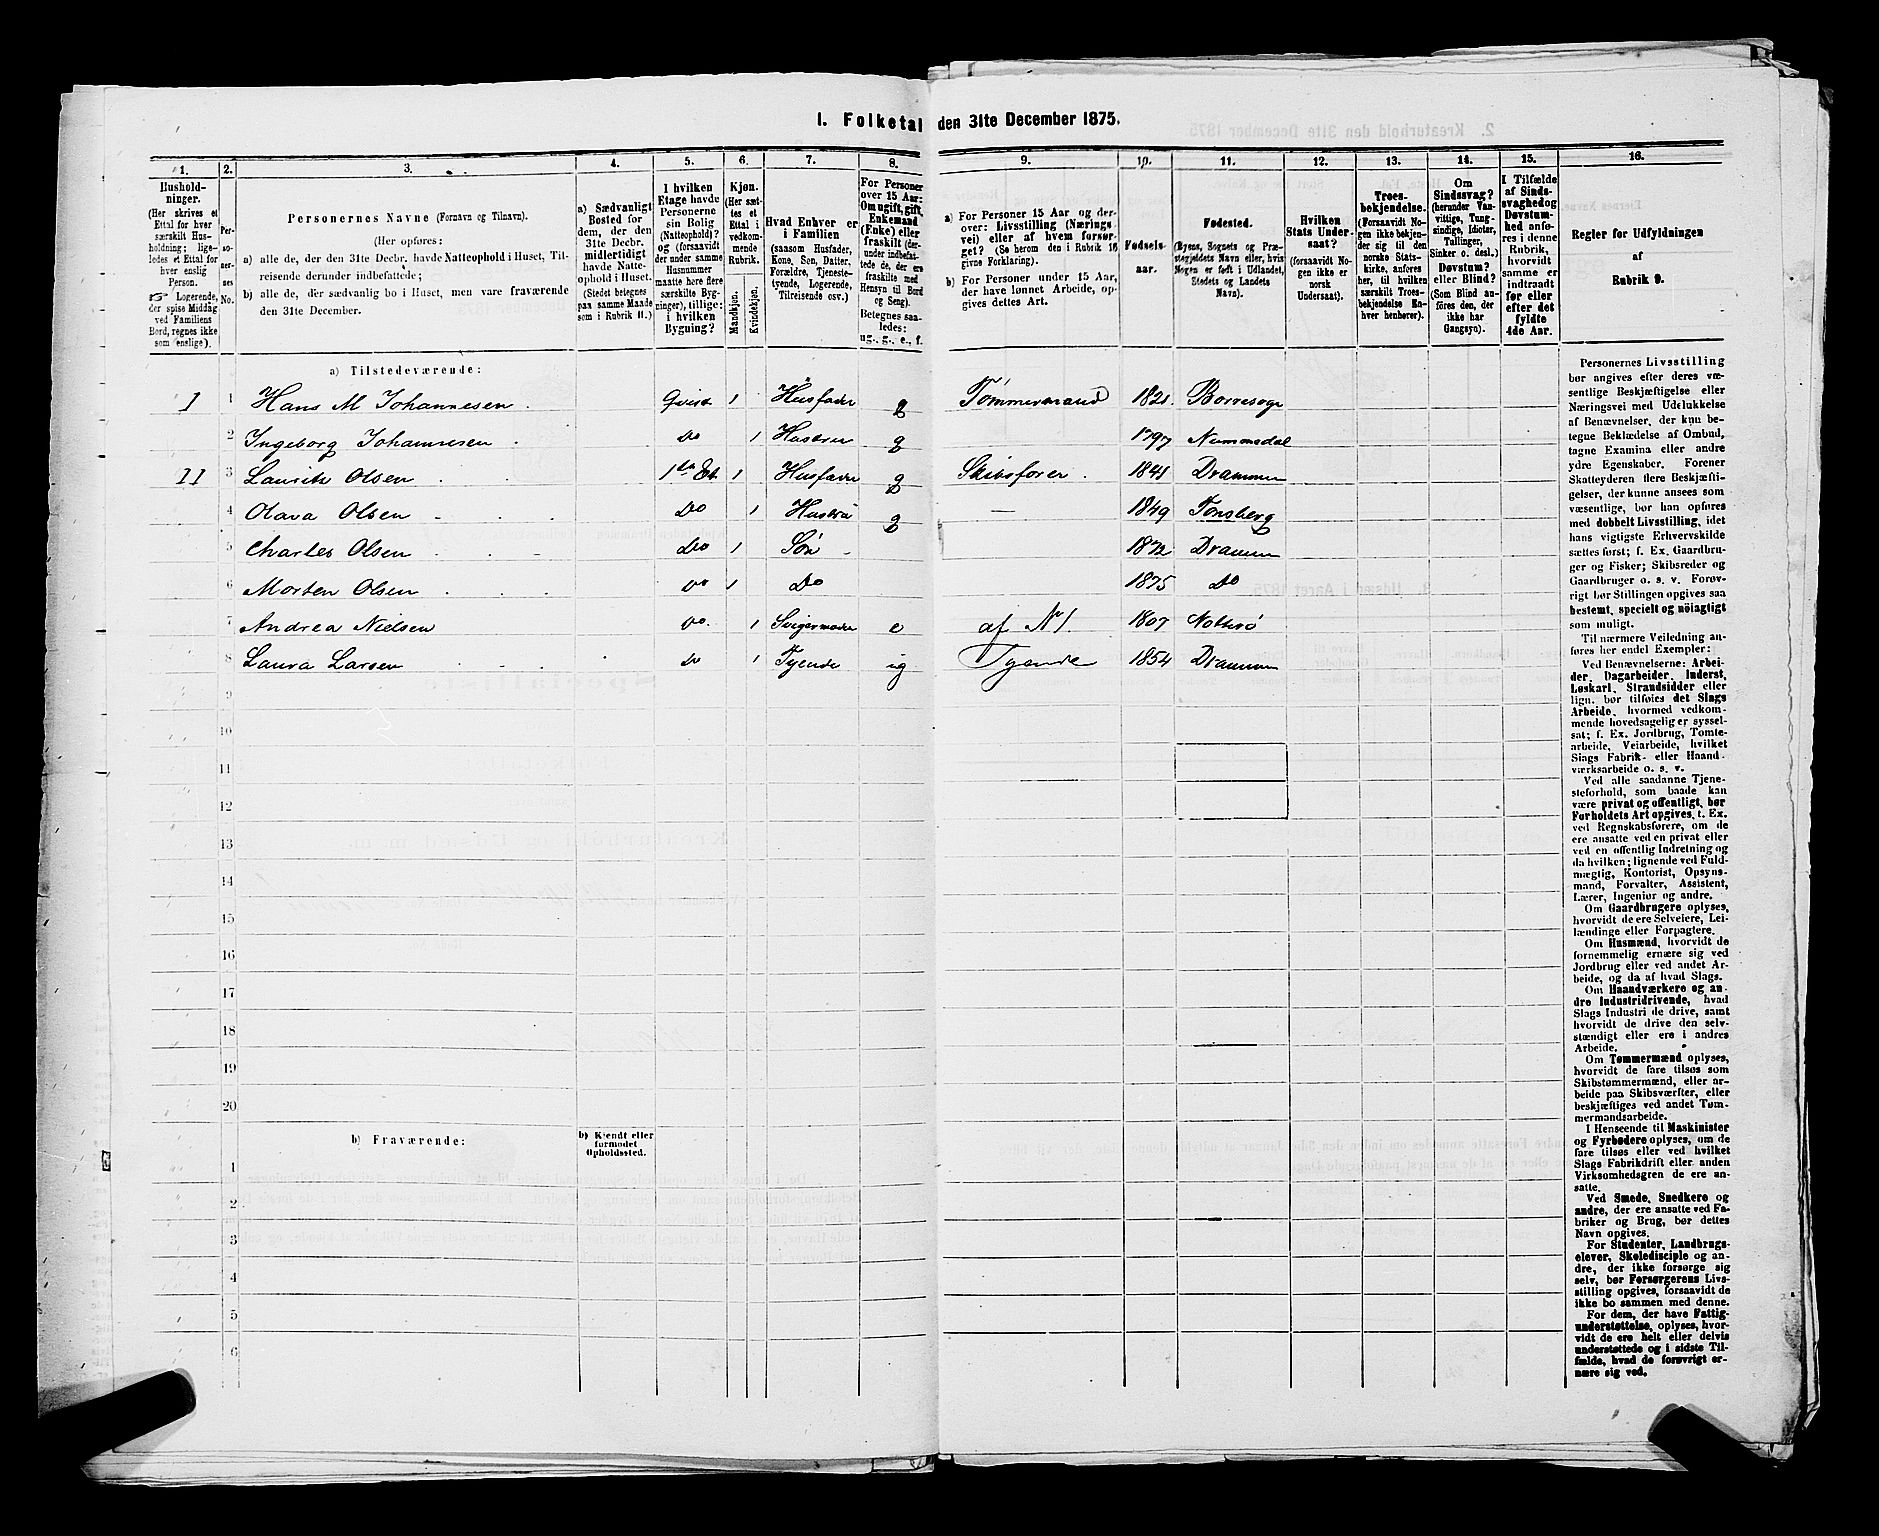 I. Folketal den 31te December 1875.
1. 2. 3. 4. 5. 6. 7. 8. 9. 10. 11. 12. 13. 14. 15. 16.
Hushold-
ninger.
(Her skrives et
Ettal for hver
særskilt Hus-
holdning; lige-
ledes et Ettal for
hver enslig
Person.
☞ Logerende,
der spise Middag
ved Familiens
Bord, regnes ikke
som enslige).
Per-
so-
ner-
nes
No.
Personernes Navne (Fornavn og Tilnavn).
(Her opføres:
a) alle de, der den 31te Decbr. havde Natteophold i Huset, Til-
reisende derunder indbefattede;
b) alle de, der sædvanlig bo i Huset, men vare fraværende
den 31te December.
a) Sædvanligt
Bosted for
dem, der den
31te Decbr.
midlertidigt
havde Natte-
ophold i Huset.
(Stedet betegnes
paa samme Maade
som i Rubrik 11.)
I hvilken
Etage havde
Personerne
sin Bolig
(Natteophold)?
og (forsaavidt
der under samme
Husnummer
maatte høre flere
særskilte Byg-
ninger), tillige:
i hvilken
Bygning?
Kjøn.
(Her sæt-
tes et
Ettal i
vedkom-
mende
Rubrik.
Mandkjøn.
Kvindekjøn.
Hvad Enhver er
i Familien
(saasom Husfader,
Kone, Søn, Datter,
Forældre, Tjeneste-
tyende, Logerende,
Tilreisende osv.)
For Personer
over 15 Aar:
Om ugift, gift,
Enkemand
(Enke) eller
fraskilt (der-
under indbefat-
tede de, der ere
fraskilte med
Hensyn til Bord
og Seng).
Betegnes saa-
ledes:
ug., g., e., f.
a) For Personer 15 Aar og der-
over: Livsstilling (Nærings-
vei) eller af hvem forsør-
get? (Se herom den i Rubrik 16
givne Forklaring).
b) For Personer under 15 Aar,
der have lønnet Arbeide, op-
gives dettes Art.
Fødsels-
aar.
Fødested.
(Byens, Sognets og Præ-
stegjeldets Navn eller, hvis
Nogen er født i Udlandet,
Stedets og Landets
Navn).
Hvilken
Stats Under-
saat?
(forsaavidt No-
gen ikke er
norsk
Undersaat).
Troes-
bekjendelse.
(Forsaavidt No-
gen ikke bekjen-
der sig til den
norske Stats-
kirke, anføres
her, til hvilken
særskilt Troes-
bekjendelse En-
hver henhører).
Om
Sindssvag?
(herunder Van-
vittige, Tung-
sindige, Idioter,
Tullinger,
Sinker o. desl.)
Døvstum?
eller Blind?
(Som Blind an-
føres den, der
ikke har
Gangsyn).
I Tilfælde
af Sinds-
svaghed og
Døvstum-
hed anfø-
res i denne
Rubrik,
hvorvidt
samme er
indtraadt
før eller
efter det
fyldte
4de Aar.
Regler for Udfyldningen
af
Rubrik 9.
a) Tilstedeværende:
I 1 Hans M Johannesen Qvist 1 Husfader g Tømmermand 1821 Borresogn
2 Ingeborg Johannesen Do 1 Hustru g 1797 Nummedal
II 3 Lauritz Olsen 1ste Et. 1 Husfader g Skibsfører 1841 Drammen
4 Olava Olsen Do 1 Hustru g — 1849 Tønsberg
5 Charles Olsen Do 1 Søn 1872 Drammen
6 Morten Olsen Do 1 Do 1875 Do
7 Andrea Nielsen Do 1 Svigermoder e af N 1. 1807 Nøtterø
8 Laura Larsen Do 1 Tyende ug Tyende 1854 Drammen
9
10
11
12
13
14
15
16
17
18
19
20
b) Fraværende:
b) Kjendt eller
formodet
Opholdssted.
1
2
3
4
5
6
Personernes Livsstilling
bør angives efter deres væ-
sentlige Beskjæftigelse eller
Næringsvei med Udelukkelse
af Benævnelser, der kun be-
tegne Beklædelse af Ombud,
tagne Examina eller andre
ydre Egenskaber. Forener
Skatteyderen flere Beskjæfti-
gelser, der kunne ansees som
væsentlige, bør han opføres
med dobbelt Livsstilling, idet
hans vigtigste Erhvervskilde
sættes først; f. Ex. Gaardbru-
ger og Fisker; Skibsreder og
Gaardbruger o. s. v. Forøv-
rigt bør Stillingen opgives saa
bestemt, specielt og nöiagtigt
som muligt.
Til nærmere Veiledning an-
føres her endel Exempler:
Ved Benævnelserne: Arbei-
der, Dagarbeider, Inderst,
Løskarl, Strandsidder eller
lign. bør tilføies det Slags
Arbeide, hvormed vedkom-
mende hovedsagelig er syssel-
sat; f. Ex. Jordbrug, Tomte-
arbeide, Veiarbeide, hvilket
Slags Fabrik- eller Haand-
værksarbeide o. s. v.
Ved alle saadanne Tjene-
steforhold, som baade kan
være privat og offentligt, bør
Forholdets Art opgives, t. Ex.
ved Regnskabsførere, om de
ere ansatte ved en privat eller
ved en offentlig Indretning og
da hvilken; lignende ved Fuld-
mægtig, Kontorist, Opsyns-
mand, Forvalter, Assistent,
Lærer, Ingeniør og andre.
Om Gaardbrugere oplyses,
hvorvidt de ere Selveiere, Lei-
lændinge eller Forpagtere.
Om Husmænd, hvorvidt de
fornemmelig ernære sig ved
Jordbrug eller ved andet Ar-
beide, og da af hvad Slags.
Om Haandværkere og an-
dre Industridrivende, hvad
Slags Industri de drive, samt
hvorvidt de drive den selv-
stændigt eller ere i andres
Arbeide.
Om Tømmermænd oplyses,
hvorvidt de fare tilsøs som
Skibstømmermænd, eller ar-
beide paa Skibsværfter, eller
beskjæftiges ved andet Tøm-
mermandsarbeide.
I Henseende til Maskinister
og Fyrbødere oplyses, om de
fare tilsøs eller ved hvilket
Slags Fabrikdrift eller anden
Virksomhedsgren de ere an-
satte.
Ved Smede, Snedkere og
andre, der ere ansatte ved Fa-
briker og Brug, bør dettes
Navn opgives.
For Studenter, Landbrugs-
elever, Skoledisciple og an-
dre, der ikke forsørge sig
selv, bør Forsørgerens Livs-
stilling opgives, forsaavidt de
ikke bo sammen med denne.
For dem, der have Fattig-
understøttelse, oplyses, hvor-
vidt de ere helt eller delvis
understøttede og i sidste Til-
fælde, hvad de forøvrigt er-
nære sig ved.